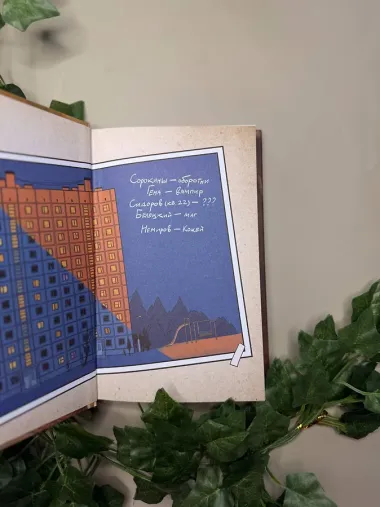 Сорокины — оборотни
Гена — вампир
Сидоров (кв. 22) — ???
Белецкий — маг
Немиров — Кощей